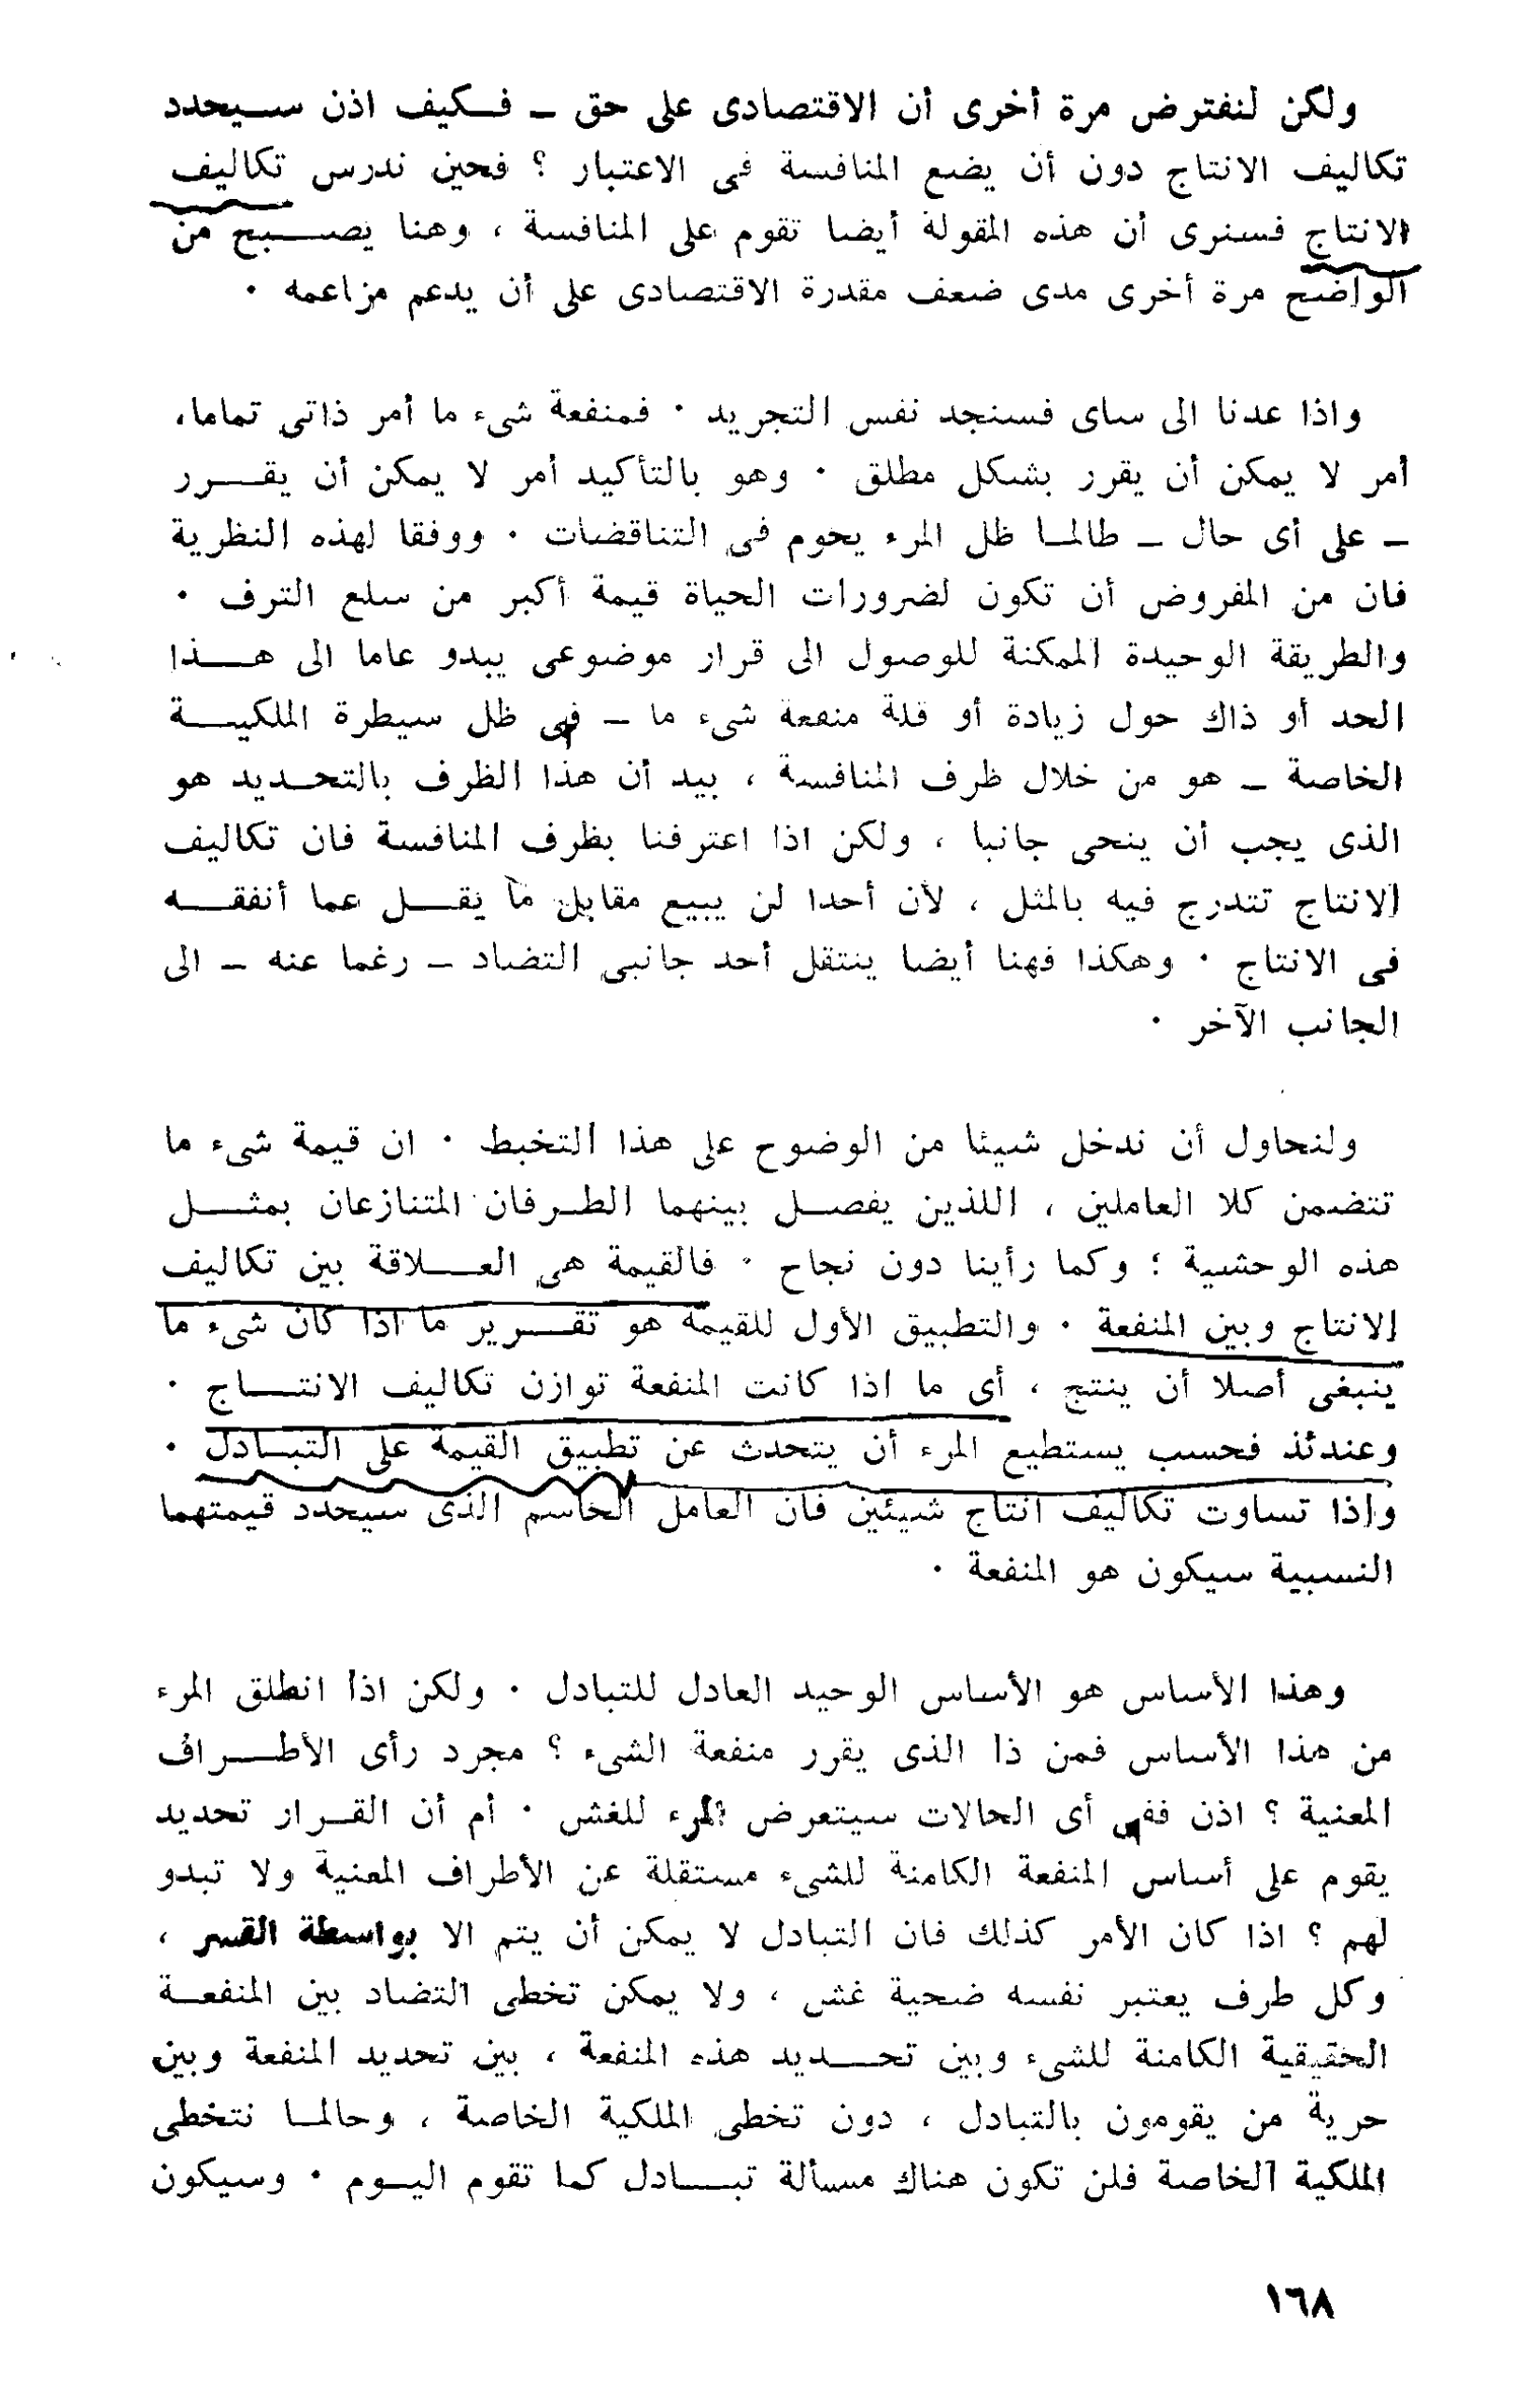 ولكن لنفترض مرة أخرى أن الاقتصادى على حق ــ فكيف اذن سيحدد
تكاليف الانتاج دون أن يضع المنافسة فى الاعتبار ؟ فحين ندرس تكاليف
الانتاج فسنرى أن هذه المقولة أيضا تقوم على المنافسة ، وهنا يصبح من
الواضح مرة أخرى مدى ضعف مقدرة الاقتصادى على أن يدعم مزاعمه ٠
واذا عدنا الى ساى فسنجد نفس التجريد ٠ فمنفعة شىء ما أمر ذاتى تماما،
أمر لا يمكن أن يقرر بشكل مطلق ٠ وهو بالتأكيد أمر لا يمكن أن يقرر
ــ على أى حال ــ طالما ظل المرء يحوم فى التناقضات ٠ ووفقا لهذه النظرية
فان من المفروض أن تكون لضرورات الحياة قيمة أكبر من سلع الترف ٠
والطريقة الوحيدة الممكنة للوصول الى قرار موضوعى يبدو عاما الى هذا
الحد أو ذاك حول زيادة أو قلة منفعة شىء ما ــ فى ظل سيطرة الملكية
الخاصة ــ هو من خلال ظرف المنافسة ، بيد أن هذا الظرف بالتحديد هو
الذى يجب أن ينحى جانبا ، ولكن اذا اعترفنا بظرف المنافسة فان تكاليف
الانتاج تندرج فيه بالمثل ، لأن أحدا لن يبيع مقابل ما يقل عما أنفقه
فى الانتاج ٠ وهكذا فهنا أيضا ينتقل أحد جانبى التضاد ــ رغما عنه ــ الى
الجانب الآخر ٠
ولنحاول أن ندخل شيئا من الوضوح على هذا التخبط ٠ ان قيمة شىء ما
تتضمن كلا العاملين ، اللذين يفصل بينهما الطرفان المتنازعان بمثل
هذه الوحشية ؛ وكما رأينا دون نجاح ٠ فالقيمة هى العلاقة بين تكاليف
الانتاج وبين المنفعة ٠ والتطبيق الأول للقيمة هو تقرير ما اذا كان شىء ما
ينبغى أصلا أن ينتج ، أى ما اذا كانت المنفعة توازن تكاليف الانتاج ٠
وعندئذ فحسب يستطيع المرء أن يتحدث عن تطبيق القيمة على التبادل ٠
واذا تساوت تكاليف انتاج شيئين فان العامل الحاسم الذى سيحدد قيمتهما
النسبية سيكون هو المنفعة ٠
وهذا الأساس هو الأساس الوحيد العادل للتبادل ٠ ولكن اذا انطلق المرء
من هذا الأساس فمن ذا الذى يقرر منفعة الشىء ؟ مجرد رأى الأطراف
المعنية ؟ اذن ففى أى الحالات سيتعرض المرء للغش ٠ أم أن القرار تحديد
يقوم على أساس المنفعة الكامنة للشىء مستقلة عن الأطراف المعنية ولا تبدو
لهم ؟ اذا كان الأمر كذلك فان التبادل لا يمكن أن يتم الا بواسطة القسر ،
وكل طرف يعتبر نفسه ضحية غش ، ولا يمكن تخطى التضاد بين المنفعة
الحقيقية الكامنة للشىء وبين تحديد هذه المنفعة ، بين تحديد المنفعة وبين
حرية من يقومون بالتبادل ، دون تخطى الملكية الخاصة ، وحالما نتخطى
الملكية الخاصة فلن تكون هناك مسألة تبادل كما تقوم اليوم ٠ وسيكون
١٦٨